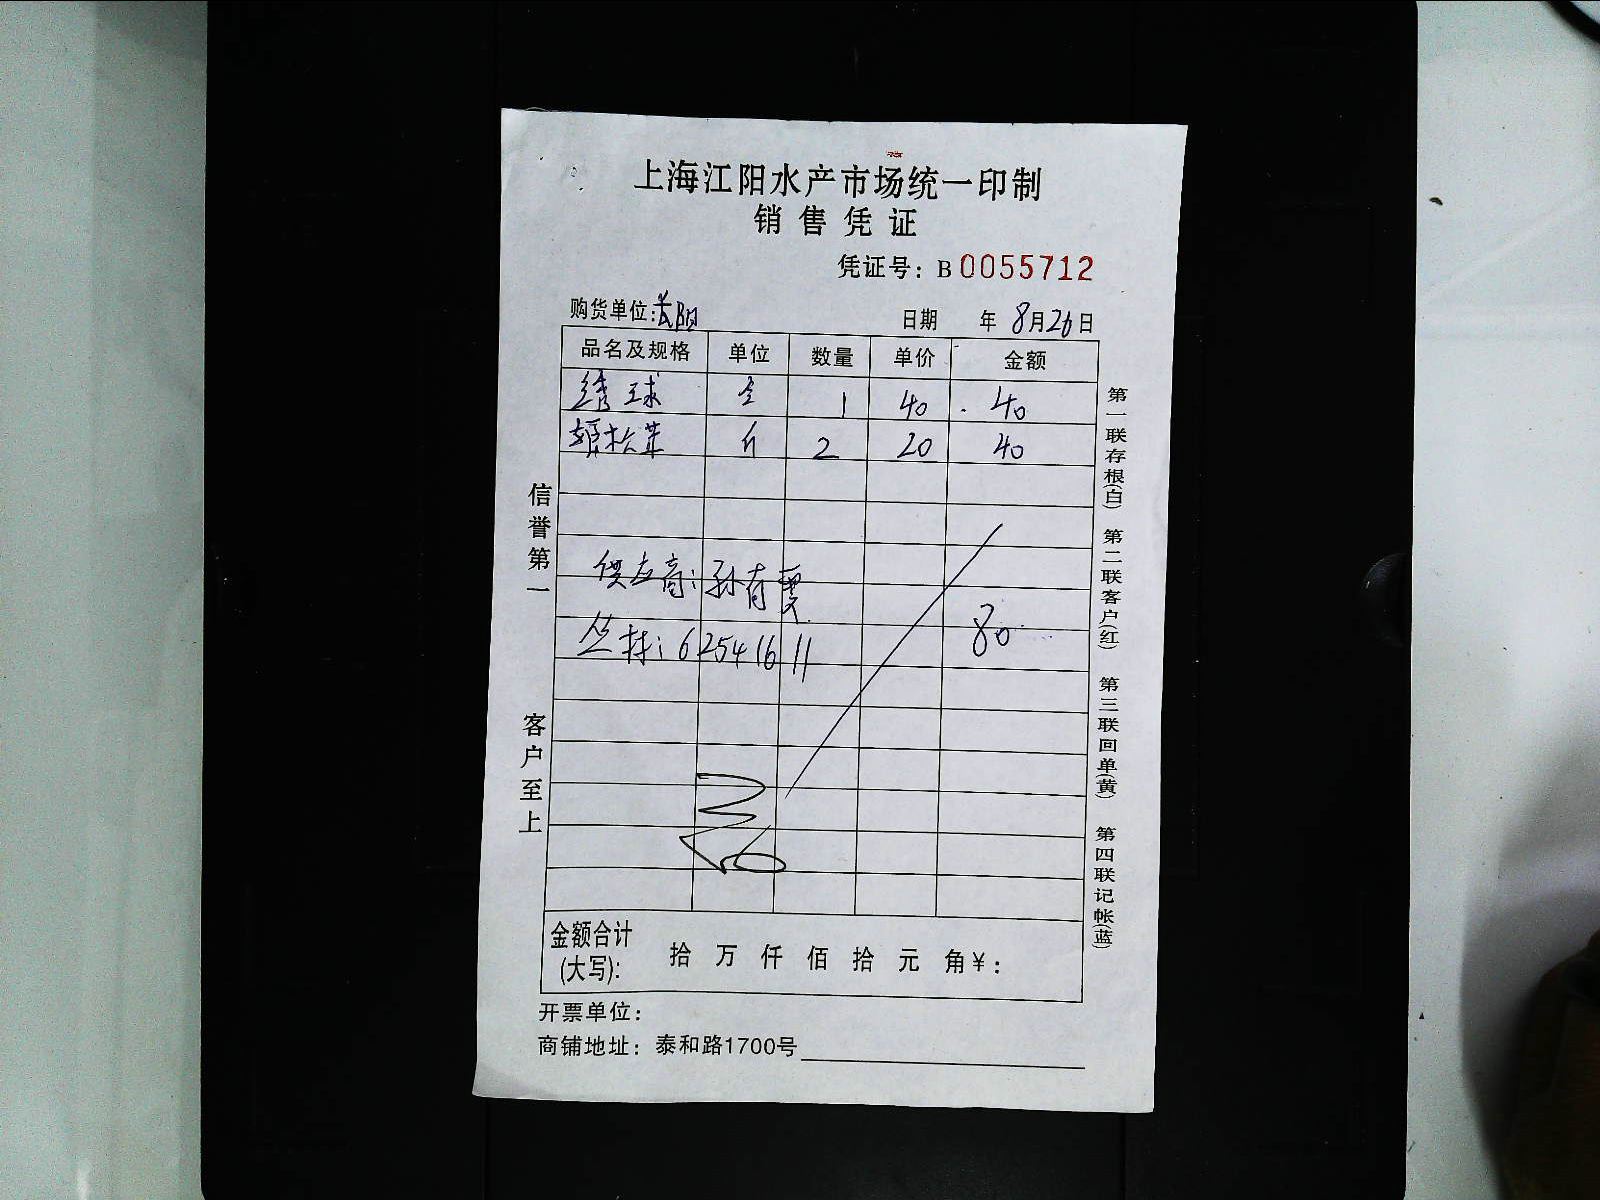 上海江阳水产市场统一印制
销售凭证
凭证号：B 0055712
购货单位： 日期 年 8月26日
品名及规格 单位 数量 单价 金额
绣球 1 40 40
姬松茸 斤 2 20 40
供应商：孙有
丛林：62541611
80
金额合计(大写)： 拾 万 仟 佰 拾 元 角 ¥：
开票单位：
商铺地址：泰和路1700号
信誉第一 客户至上
第一联存根(白) 第二联客户(红) 第三联回单(黄) 第四联记帐(蓝)